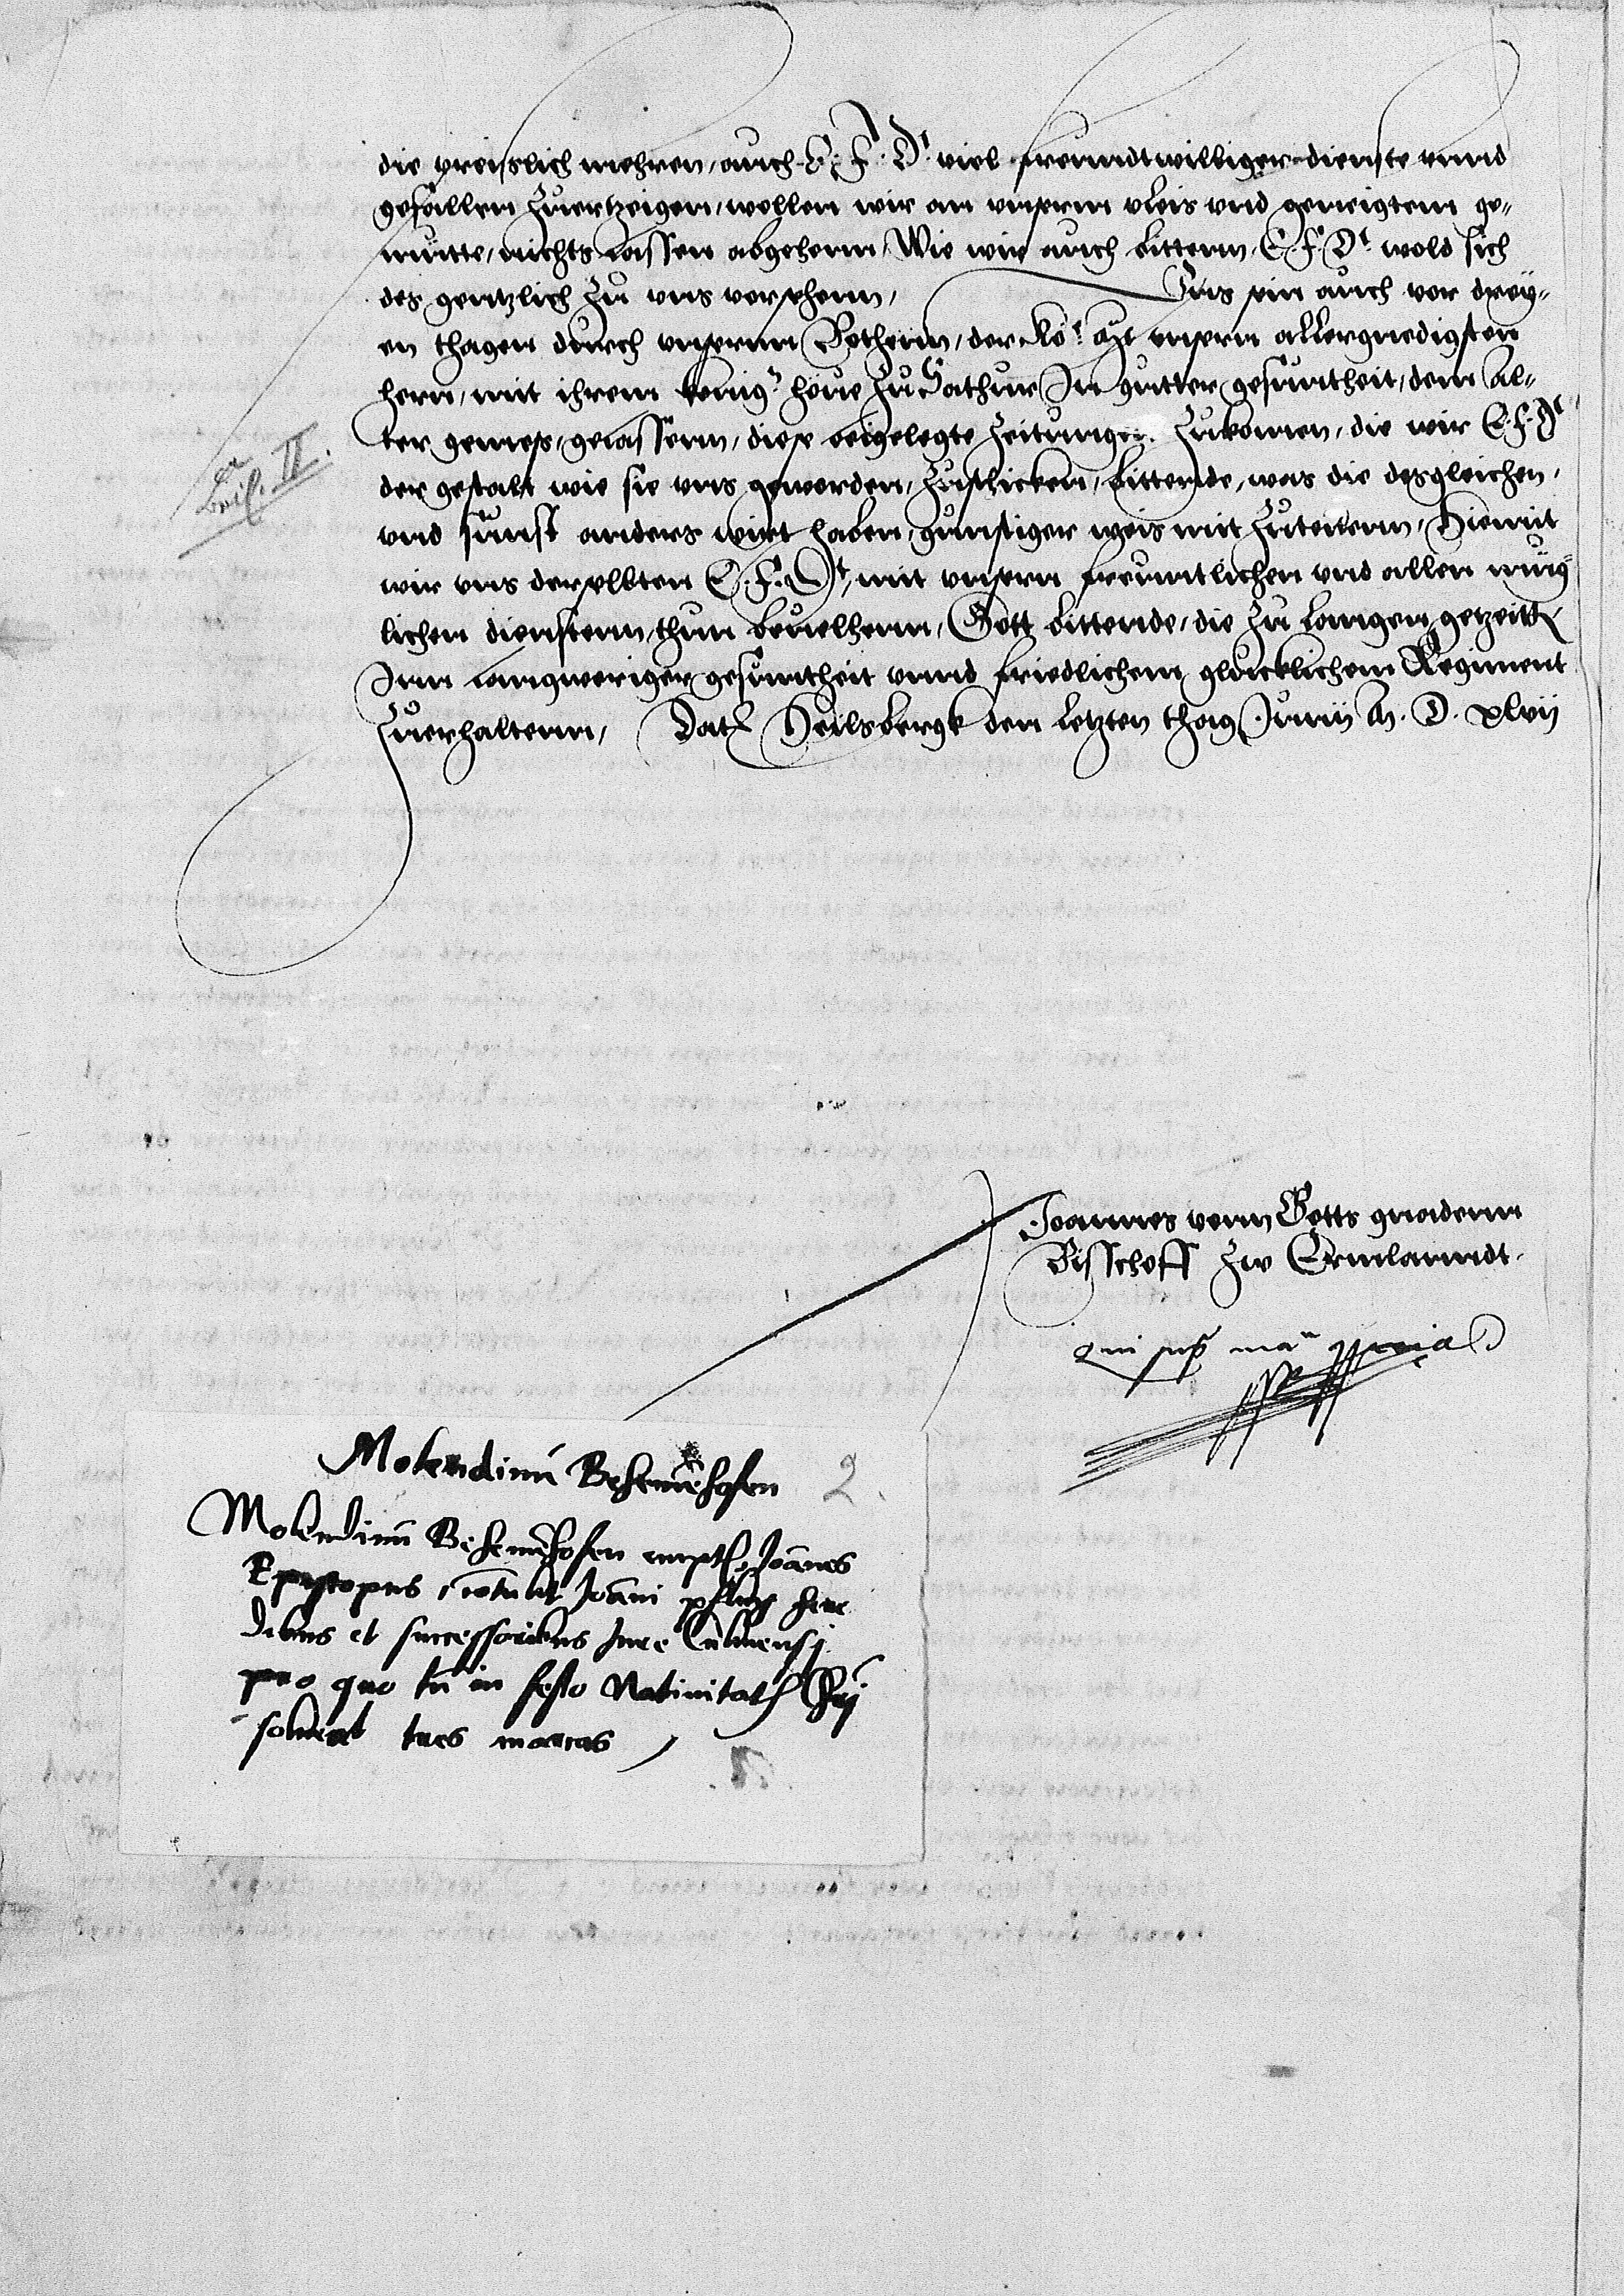 die preislich mehren, auch E. F. D^t viel freundtwilliger dienste unnd
gefallen zuertzeigen, wollen wir an unserm vleis und geneigtem ge-
mutte, nichts lassen abgehenn, Wie wir auch bittenn, E. F. D^t wold sich
des gentzlich zu uns versehenn, Uns sein auch vor drey-
en thagen durch unsernn Bothenn, der Ko^t M^t unsern allergnedigsten
hern, mit ihrem konig^n hove zu In gutter gesuntheit, dem al-
ter gemeß, gelassenn, diese beigelegte Zeitungen zukomen, die wir E. F. D^t
der gestalt wie sie uns geworden, zuschicken, bittende, was die desgleichen,
und sunst anders wirt haben, gunstiger weis mit zuteilenn, Hiemit
wir uns derselbten E. F. D^t, mit unsern freuntlichen und allen mug-
lichen dienstenn, thun bevelhenn, Gott bittende, die zu langen getzeittn
Inn langweriger gesuntheit unnd friedlichem glucklichem Regiment
zuerhaltenn, Dat Heilsbergk den letzten thag Junij M. D. xlvij
Beil. II.
Joannes vonn Gotts gnadenn
Bisschoff zw Ermlanndt.
qui sup^t ma^u ppria
Molendinu Behemehofen 2.
Molendinu Behemehofen empt Joanes
Episcopus, cotulit Joani pflug here
dibus et successoribus Jure Culmensj
pro quo tn in festo Nativitat Chrj
solvat tres marcas